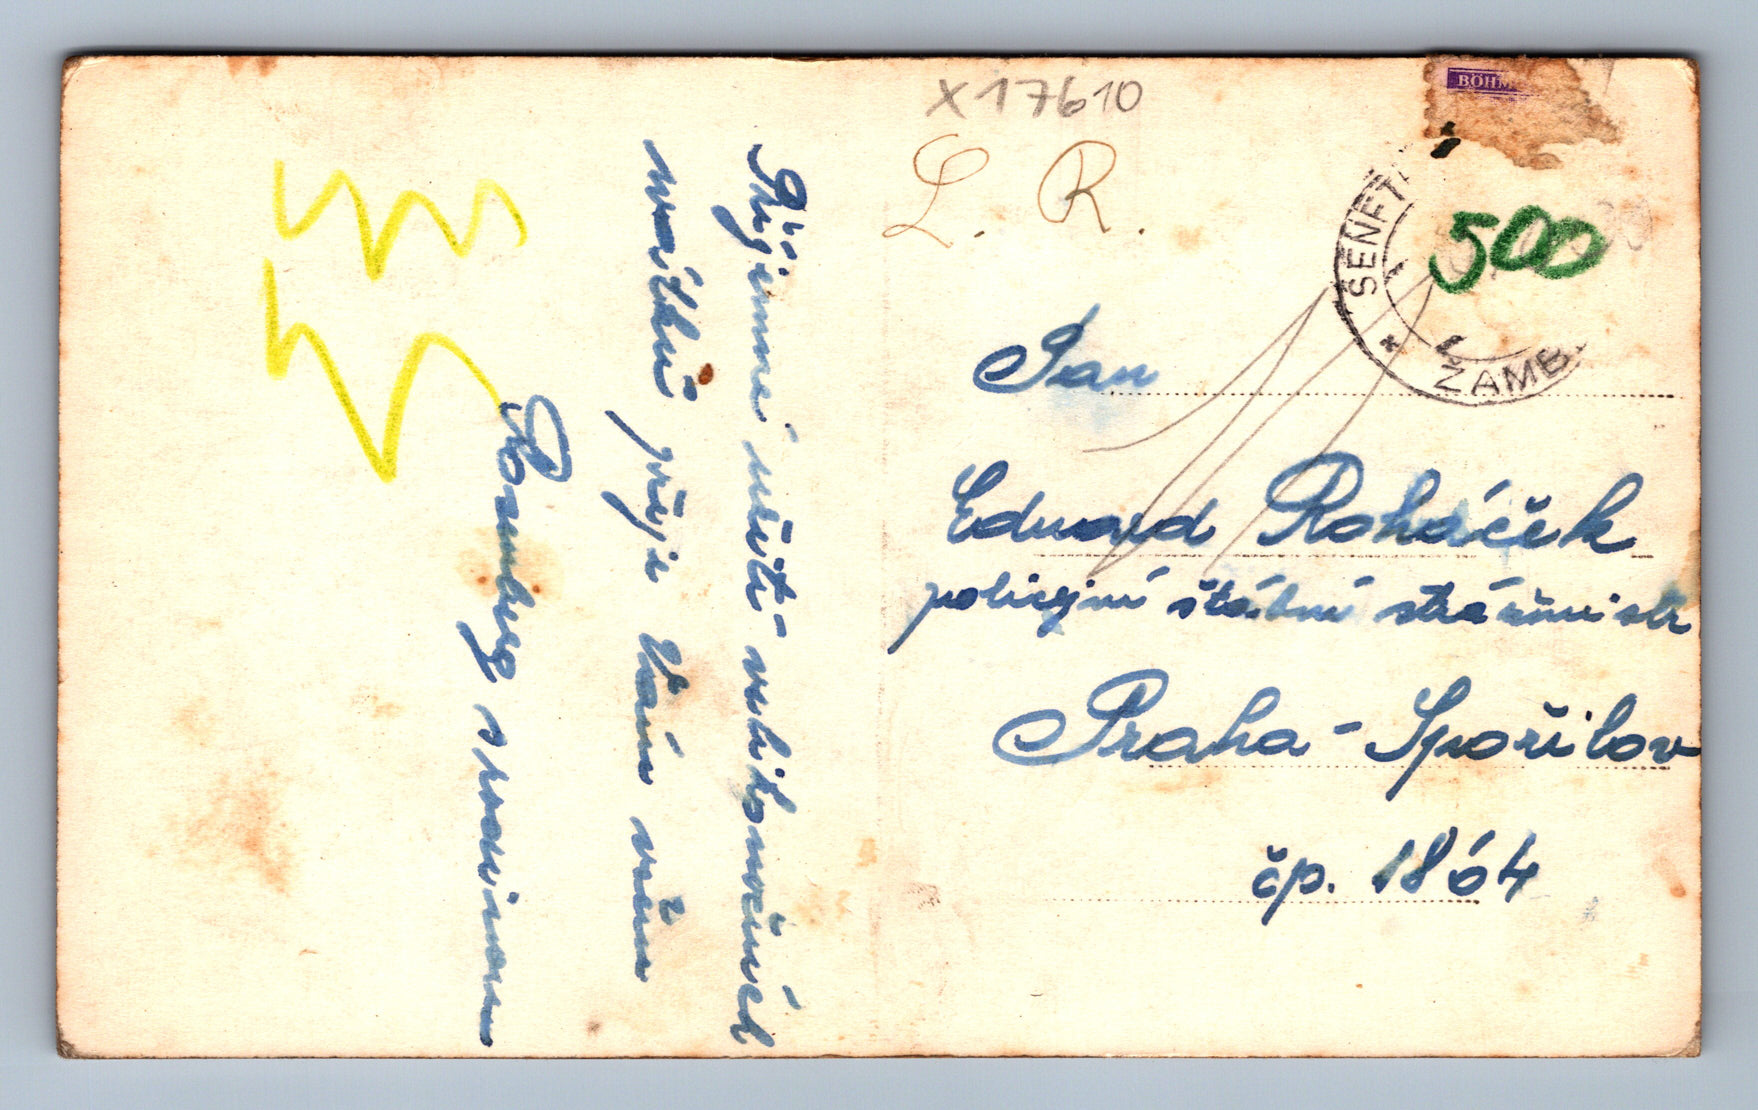 X17610
L. R.
BÖHM
SENFT
ŽAMB.
500
Příjemné užití velikonočních
svátků přeje Vám vším
Rosenberg s rodinou
Pan
Eduard Roháček
policejní štábní strážmistr
Praha-Spořilov
čp. 1864